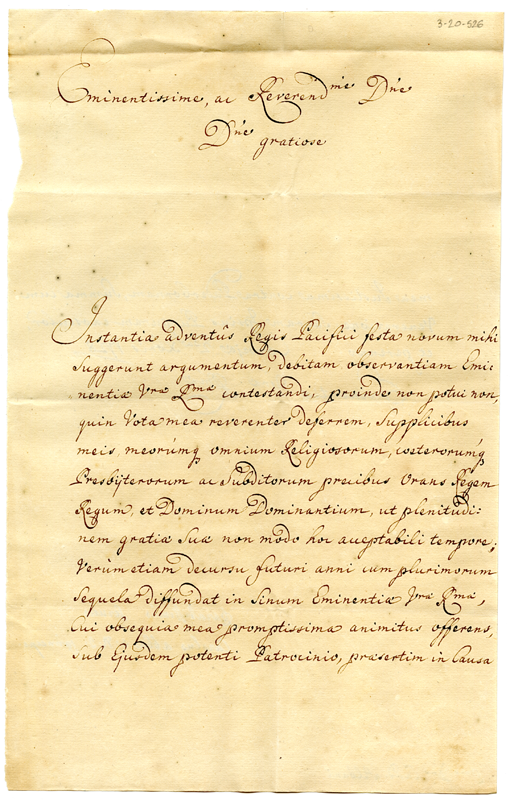 3-20-526
Eminentissime, ac Reverend.me Dn̄e
Dn̄e gratiose
Instantia adventûs Regis Pacifici festa novum mihi
Suggerunt argumentum, debitam observantiam Emi:
nentiæ Vræ Rmæ contestandi, proinde non potui non,
quin Vota mea reverenter deferrem, Supplicibus
meis, meorúmq omnium Religiosorum, cœterorúmq
Presbÿterorum ac Subditorum precibus Orans Regem
Regum, et Dominum Dominantium, ut plenitudi:
nem gratiæ Suæ non modo hoc acceptabili tempore,
Verùm etiam decursu futuri anni cum plurimorum
Sequela diffundat in Sinum Eminentiæ Vræ Rmæ,
Cui obsequia mea promptissima animitus offerens,
Sub Ejusdem potenti Patrocinio, præsertim in Causa